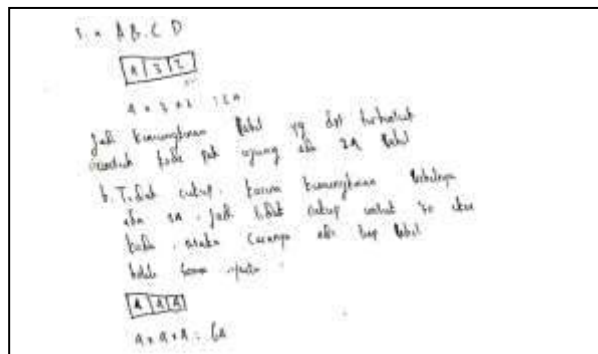 1. a A B C D
4 3 2
4 x 3 x 2 : 24
Jadi kemungkinan label yg dpt terbentuk
untuk kode pak ujang ada 24 label
b. Tidak cukup. karena kemungkinan labelnya
ada 24. jadi tidak cukup untuk 30 ekor
kuda. maka caranya ada tiap label
boleh sama yaitu
4 4 4
4 x 4 x 4 : 64